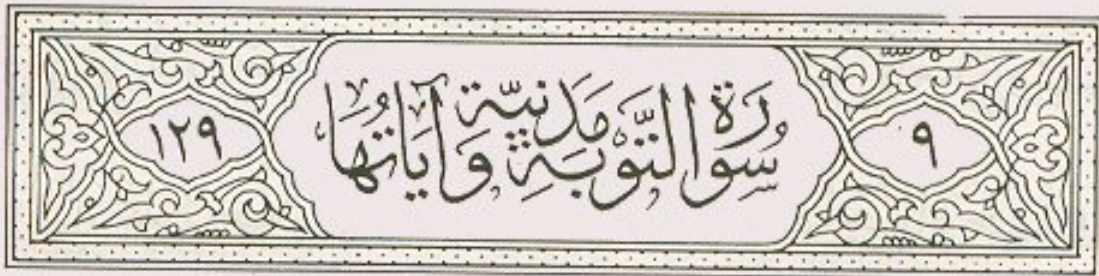 ٩
سُورَةُ التَّوبَةِ مَدَنيَّة وَآيَاتُهَا
١٢٩